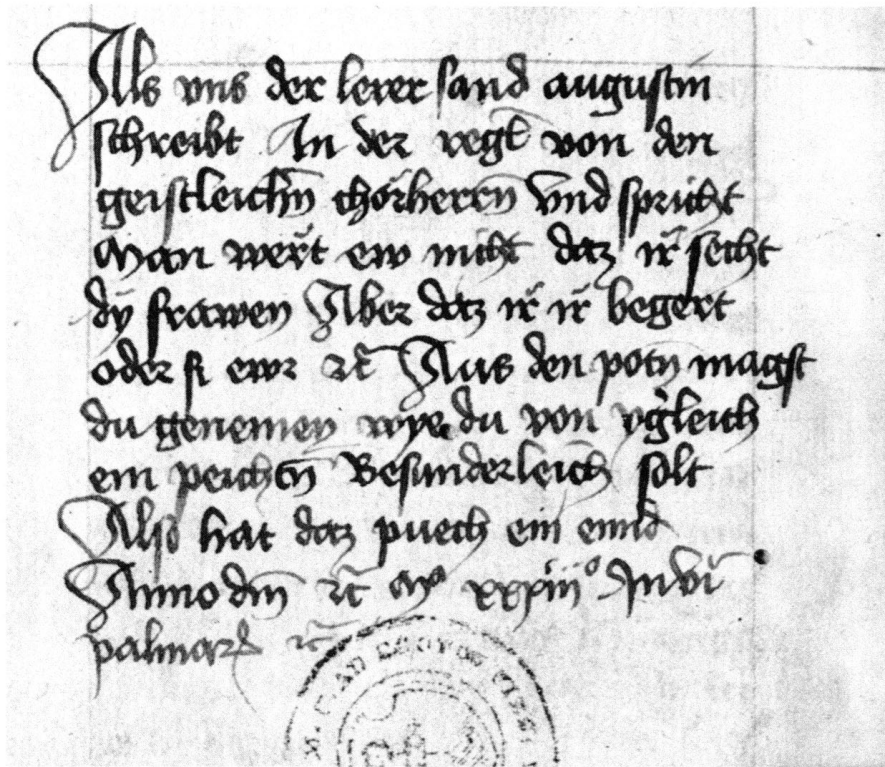 Als vns der lerer sand augustin
schreibt In der regl̄ von den
geistleichn̄ chorherrn̄ Vnd spricht
Man wert ew nicht daz ir secht
dy frawen Aber daz ir ir begert
oder si ewr ꝛc̄ Aus den potn̄ magst
du genemen wye du von ygleich
em peichtn̄ Besunderleich solt
Also hat daz puech ein ennd
Anno dm̄ ꝛc̄ Mo xxxiiio In vi
palmarꝝ ꝛc̄